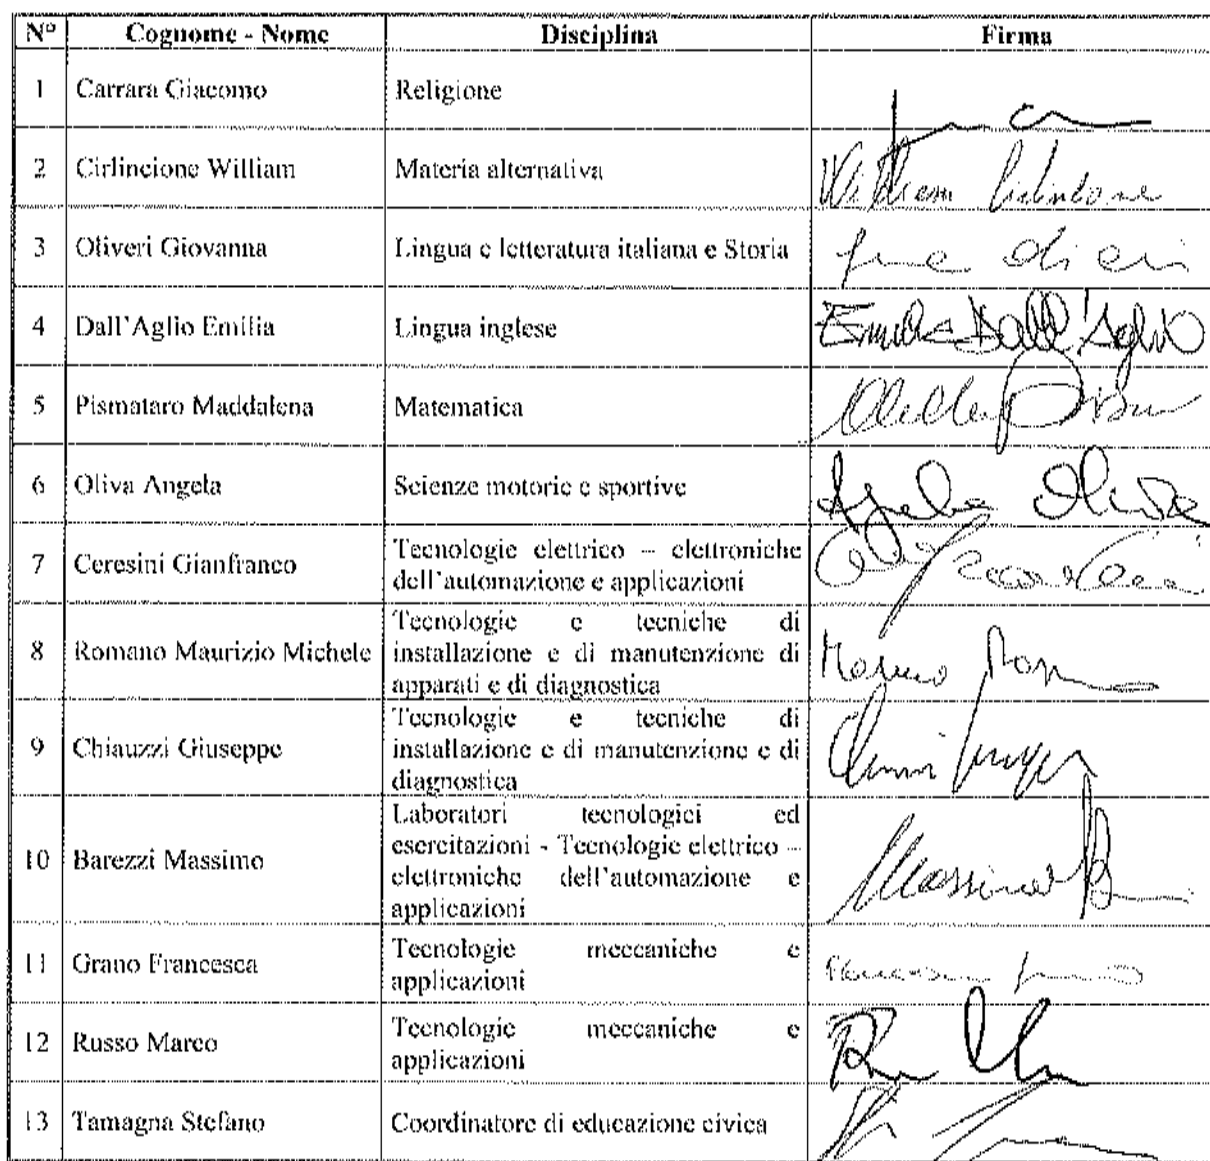 N° Cognome - Nome Disciplina Firma
1 Carrara Giacomo Religione
2 Cirlincione William Materia alternativa William Cirlincione
3 Oliveri Giovanna Lingua e letteratura italiana e Storia
4 Dall'Aglio Emilia Lingua inglese Emilia Dall'Aglio
5 Pismataro Maddalena Matematica
6 Oliva Angela Scienze motorie e sportive Angela Oliva
7 Ceresini Gianfranco Tecnologie elettrico – elettroniche
dell'automazione e applicazioni
8 Romano Maurizio Michele Tecnologie e tecniche di
installazione e di manutenzione di
apparati e di diagnostica
9 Chiauzzi Giuseppe Tecnologie e tecniche di
installazione e di manutenzione e di
diagnostica
10 Barezzi Massimo Laboratori tecnologici ed
esercitazioni - Tecnologie elettrico –
elettroniche dell'automazione e
applicazioni Massimo
11 Grano Francesca Tecnologie meccaniche e
applicazioni
12 Russo Marco Tecnologie meccaniche e
applicazioni
13 Tamagna Stefano Coordinatore di educazione civica